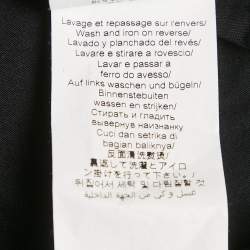 Lavage et repassage sur l'envers/
Wash and iron on reverse/
Lavado y planchado del revés/
Lavare e stirare a rovescio/
Lavar e passar a
ferro do avesso/
Auf links waschen und bügeln/
Binnenstebuiten
wassen en strijken/
Стирать и гладить
вывернув наизнанку
Cuci dan setrika di
bagian baliknya/
反面清洗熨烫/
裏返して洗濯とアイロ
ン掛けを行って下さい/
뒤집어서 세탁 및 다림질할 것
غسل و كي من الجهة الداخلية